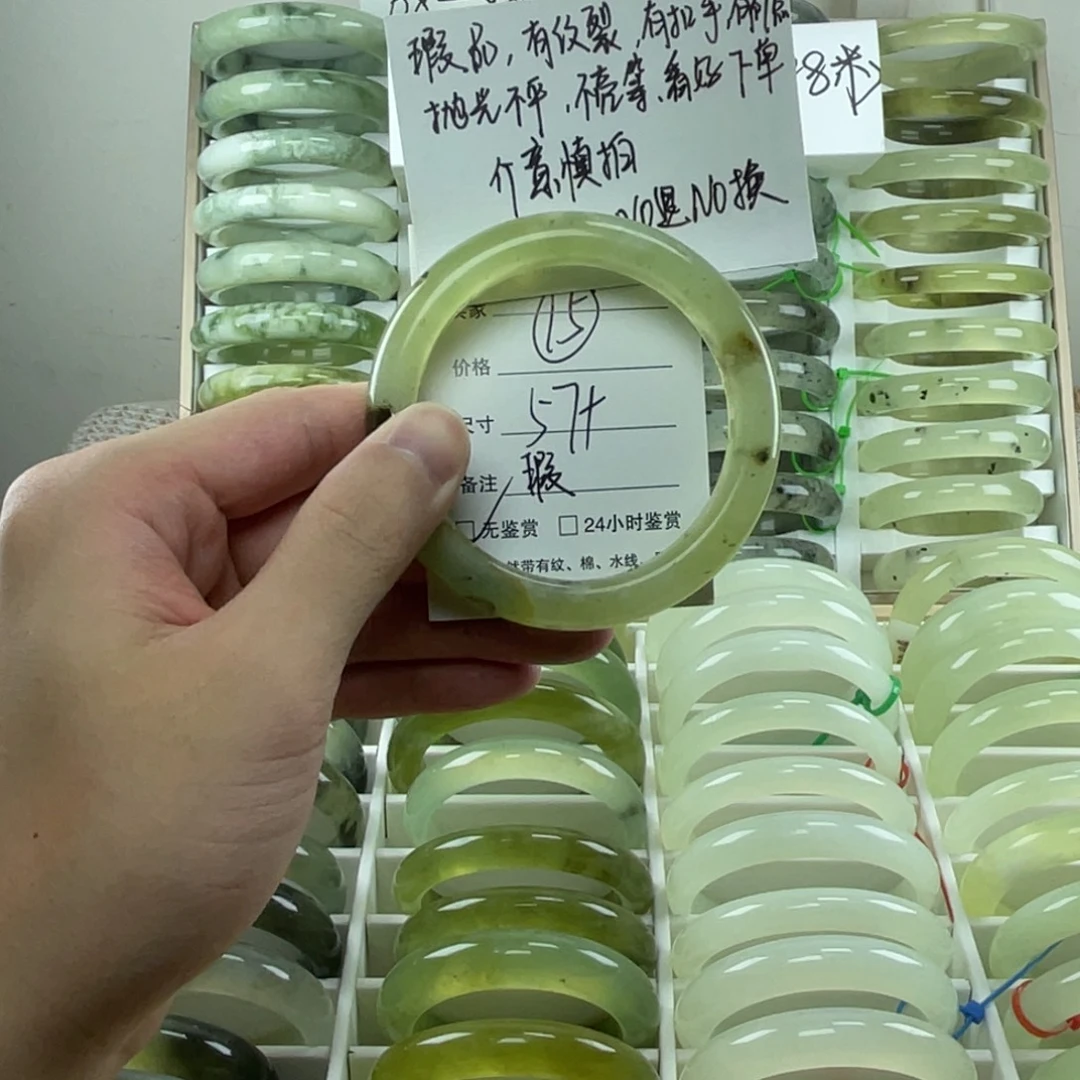 瑕品，有纹裂，有扣手
抛光不平，不亮等，看好下单
8米
介意慎拍
NO退NO换
15
价格
尺寸 57+
备注 瑕
无鉴赏 24小时鉴赏
然带有纹、棉、水线